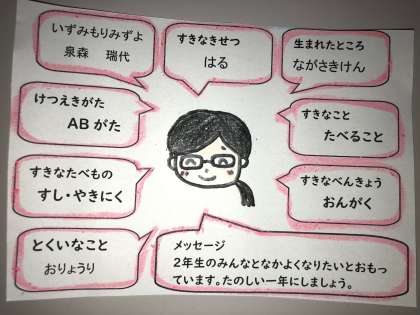 いずみもりみずよ
泉森　瑞代
すきなきせつ
はる
生まれたところ
ながさきけん
けつえきがた
ABがた
すきなこと
たべること
すきなたべもの
すし・やきにく
すきなべんきょう
おんがく
とくいなこと
おりょうり
メッセージ
2年生のみんなとなかよくなりたいとおもっ
ています。たのしい一年にしましょう。